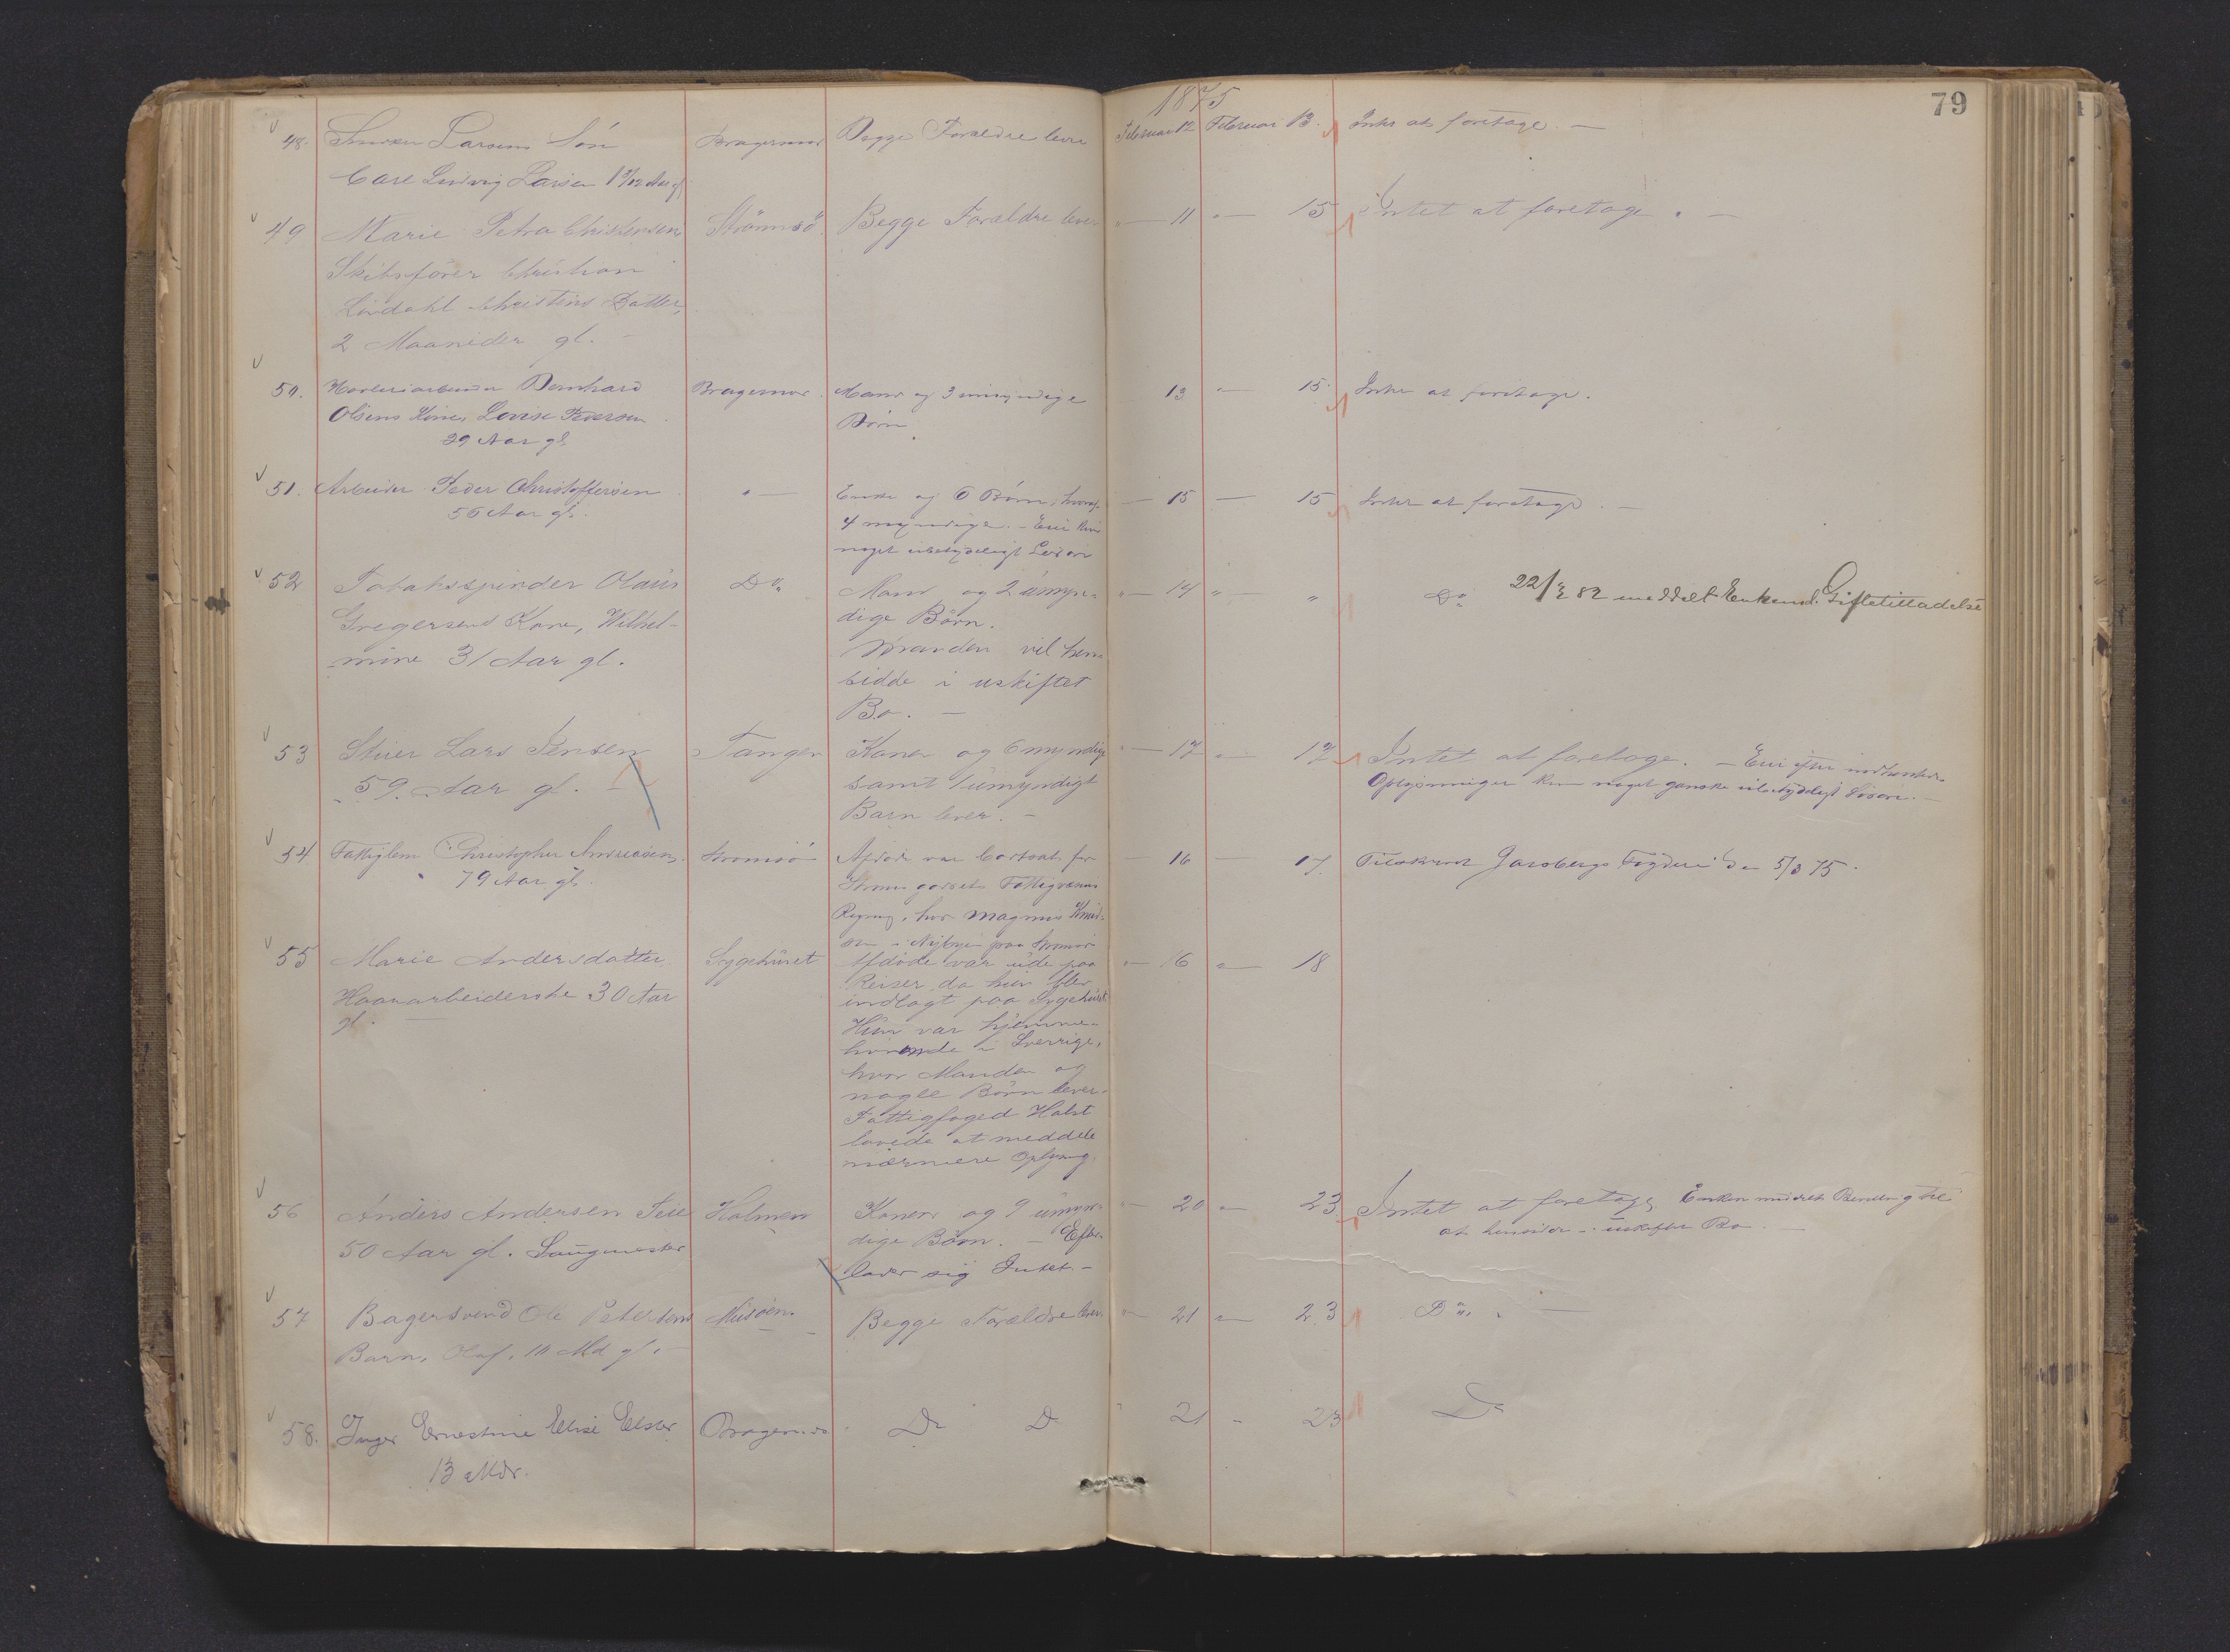 1875
79
48. Larsens Søn Bragernes Begge Forældre lever Februar 12 Februar 13. Intet at foretage. —
Carl Ludvig Larsen
49 Marie Petra Christensen Strømsø Begge Forældre lever — 11 " — 15 Intet at foretage. —
Skibsfører Christian
Lindahl Christens Datter,
2 Maaneder gl. —
50. Bernhard Bragernes. Mand og 3 umyndige — 13 — 15. Intet at foretage.
Olsens Kone, Lovise Pedersen Børn.
29 Aar gl.
51. Arbeider Peder Christoffersen " — Enke og 6 Børn, hvoraf — 15 — 15 Intet at foretage. —
56 Aar gl. 4 myndige. — Eier kun
noget ubetydeligt Løsøre
52 Tobaksspinder Olaus Do Mand og 2 umyn- " — 14 " — " Do 22/2 82 meddelt Enkemd. Giftetilladelse
Gregersens Kone, Wilhel- dige Børn.
mine 31 Aar gl. Manden vil hen-
sidde i uskiftet
Bo. —
53 Stuer Lars Jensen Tangen Konen og 6 myndige " — 17 " — 17 Intet at foretage. — Eier efter indhentede
59 Aar gl. — samt 1 umyndigt Oplysninger kun noget ganske ubetydeligt Løsøre. —
Barn lever. —
54 Fattiglem Christopher Andreasen Strømsø Afdøde var bortsat for — 16 — 17. Tilskrevet Jarlsbergs Fogderi den 5/3 75.
79 Aar gl. Strømsgodsets Fattigvæsens
Regning, hos Magnus Knud-
sen i Nybyen paa Strømsø
55 Marie Andersdatter Sygehuset Afdøde var ude paa " — 16 " — 18
Haararbeiderske 30 Aar Reiser, da hun blev
gl. — indlagt paa Sygehuset
Hun var hjemme-
hørende i Sverrige,
hvor Manden og
nogle Børn lever.
Fattigfoged Holst
lovede at meddele
nærmere Oplysng.
56 Anders Andersen Holmen Konen og 9 umyn- " — 20 " — 23 Intet at foretage, Enken meddelt Bevilling til
50 Aar gl. Saugmester dige Børn. — Efter- at hensidde i uskiftet Bo. —
lader sig Intet. —
57 Bagersvend Ole Petersens Begge Forældre lever " — 21 " — 23 Do. —
Barn, Olaf, 10 Md gl. —
58. Inger Ernestine Elise Elster Bragernes Do Do " 21 " 23 Do
13 Mdr.